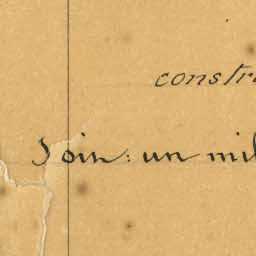 constr
Join: un mil